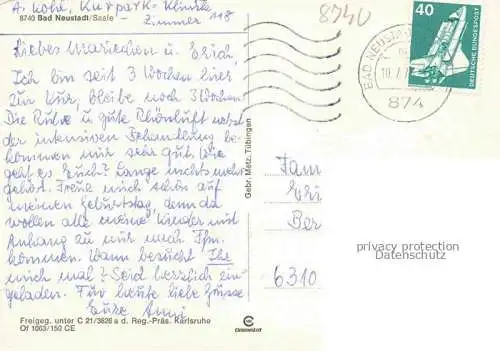 A. Kohl, Kurpark-Klinik
8740 Bad Neustadt/Saale - Zimmer 118
8740
Liebes Mariechen u. Erich,
Ich bin seit 3 Wochen hier
zur Kur, bleibe noch 3 Wochen
Die Ruhe u. gute Rhönluft nebst
der intensiven Behandlung be-
kommen mir sehr gut. Wie
geht es Euch? Lange nichts mehr
gehört. Freue mich schon auf
meinen Geburtstag, denn da
wollen alle meine Kinder mit
Anhang zu mir nach Ffm.
kommen. Wann besucht Ihr
mich mal? Seid herzlich ein-
geladen. Für heute liebe Grüsse
Eure Anni
Freigeg. unter C 21/3626 a d. Reg.-Präs. Karlsruhe
Of 1063/150 CE
Gebr. Metz, Tübingen
40
DEUTSCHE BUNDESPOST
BAD NEUSTA
874
Fam
Eri
Ber
6310
privacy protection
Datenschutz